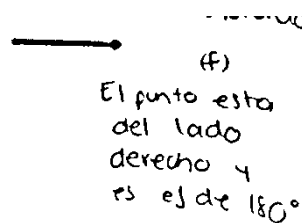 (f)
El punto esta
del lado
derecho y
es es de 180°